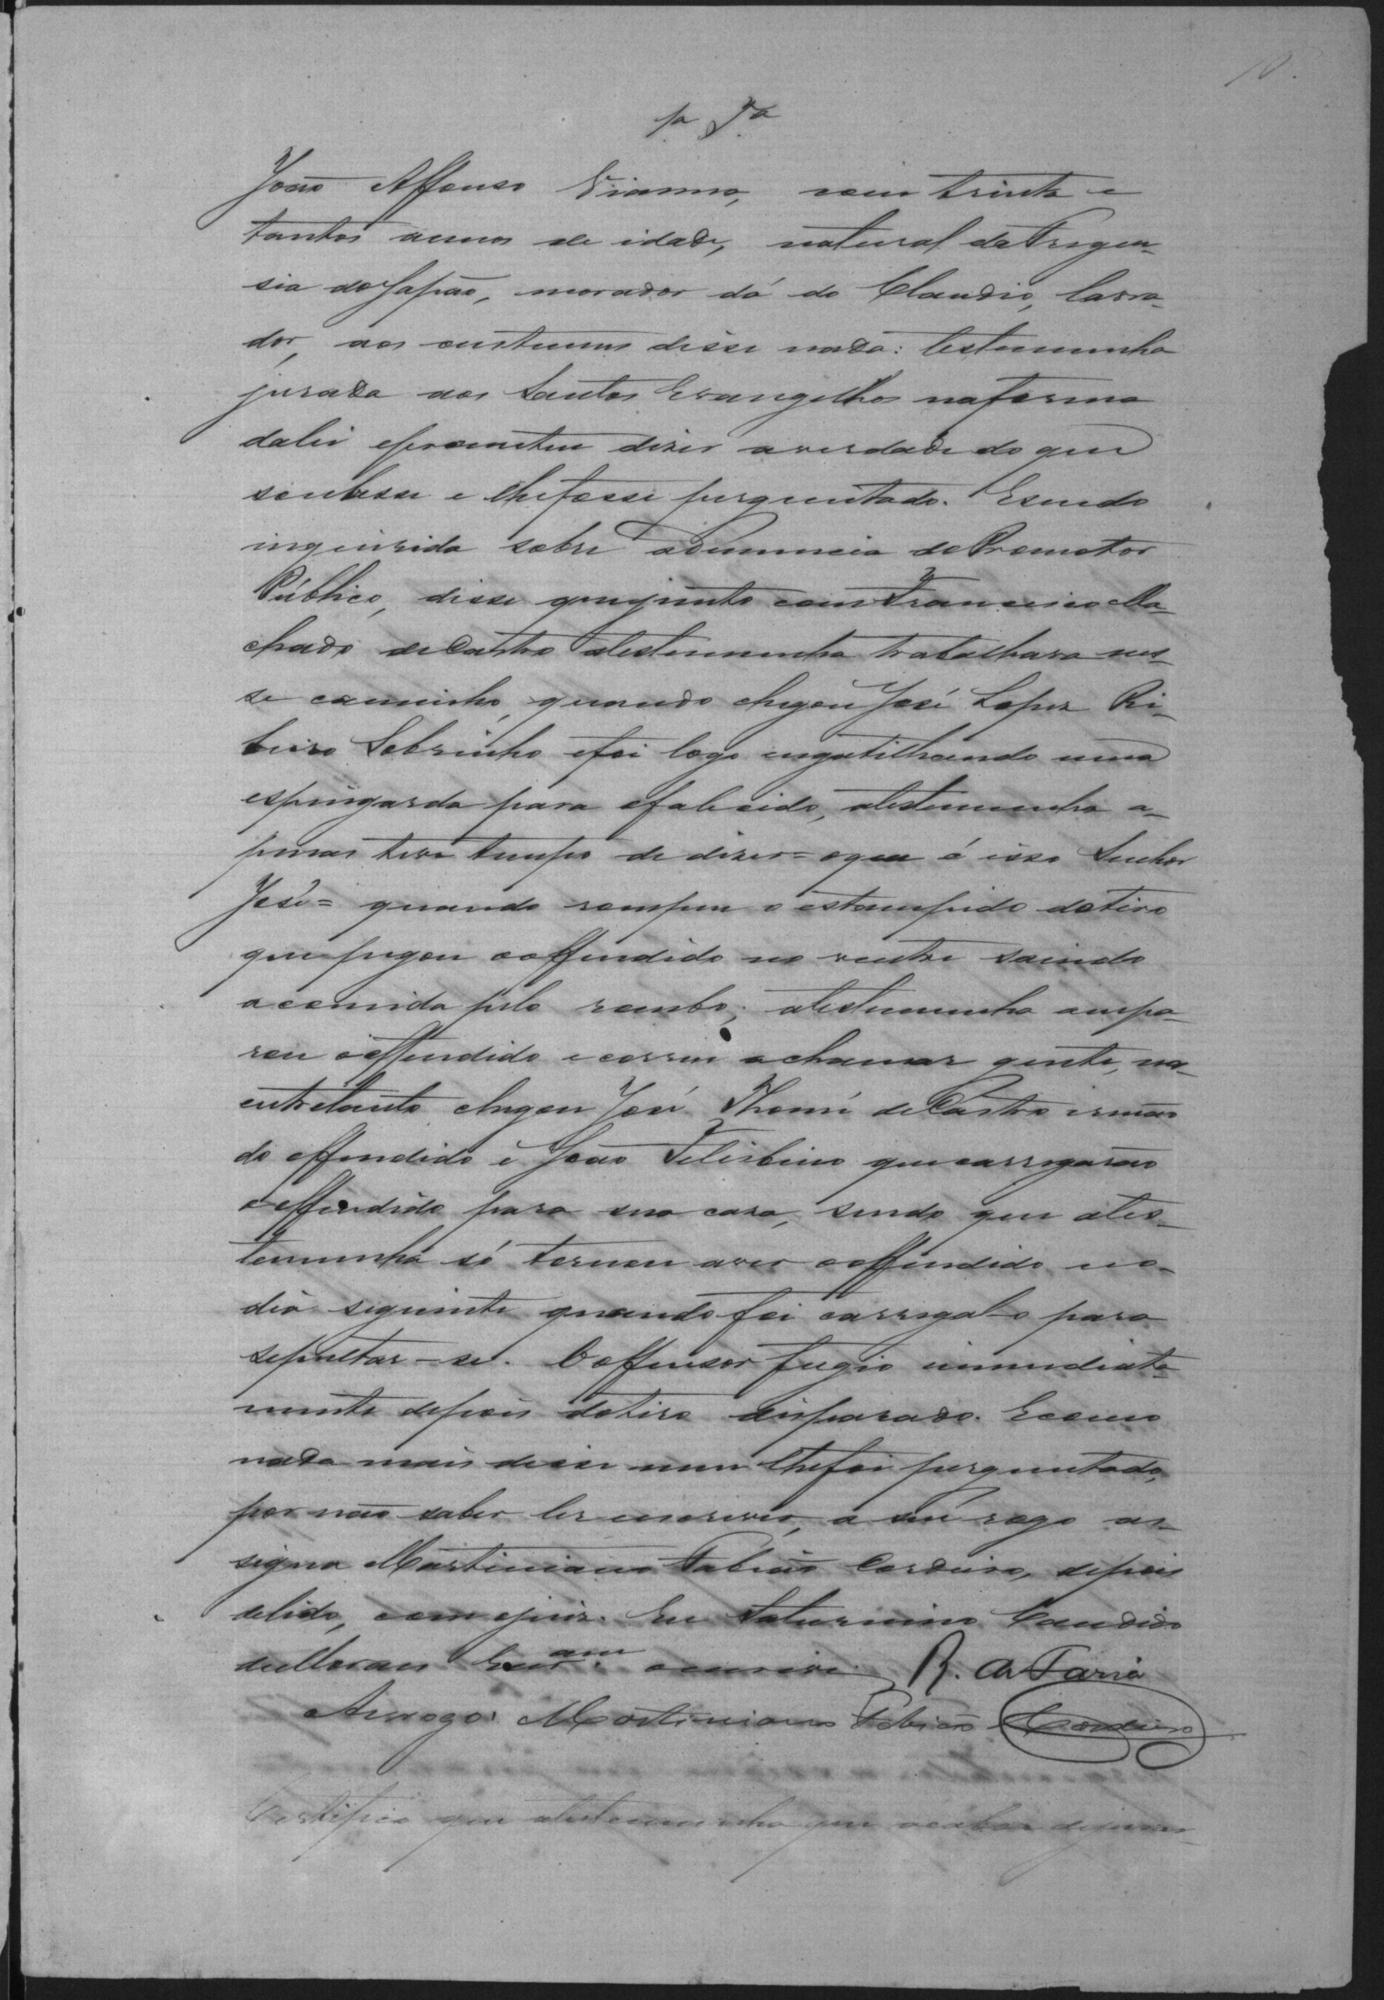 10.
1a Ta
João Affonso Vianna, com trinta e
tantos annos de idade, natural da Fregue-
sia do Japão, morador dá do Claudio, lavra-
dor, aos custumes disse nada: testemunha
jurada aos Santos Evangelhos na forma
da lei e prometeu diser a verdade do que
soubesse e lhe fosse perguntado. E sendo
inquirida sobre a denuncia do Promotor
Público, disse que junto com Francisco Ma-
chado de Castro a testemunha trabalhava nes-
se caminho, quando chegou José Lopes Ri-
beiro Sobrinho e foi logo engatilhando uma
espingarda para o falecido, a testemunha a-
penas teve tempo de diser = o que é isso Senhor
José = quando rompeu o estampido do tiro
que pegou o offendido no ventre saindo
a comida pelo rombo; a testemunha ampa-
rou o offendido e correu a chamar gente, no
entretanto chegou José Thomé de Castro irmão
do offendido e João Felisbino que carregarão
o offendido para sua casa, sendo que a tes-
temunha só tornou a ver o offendido no
dia seguinte quando foi carregal-o para
sepultar-se. O offensor fugio immediata-
mente depois do tiro disparado. E como
nada mais disse nem lhe foi perguntado,
por não saber ler e escrever, a seu rogo as-
signa Martiniano Fabião Cordeiro, depois
de lido, com o juiz. Eu Saturnino Candido
de Moraes Escram. o escrevi. R. de Faria
Arrogo: Martiniano Fabião Cordeiro
Certifico que a testemunha que acaba de jurar